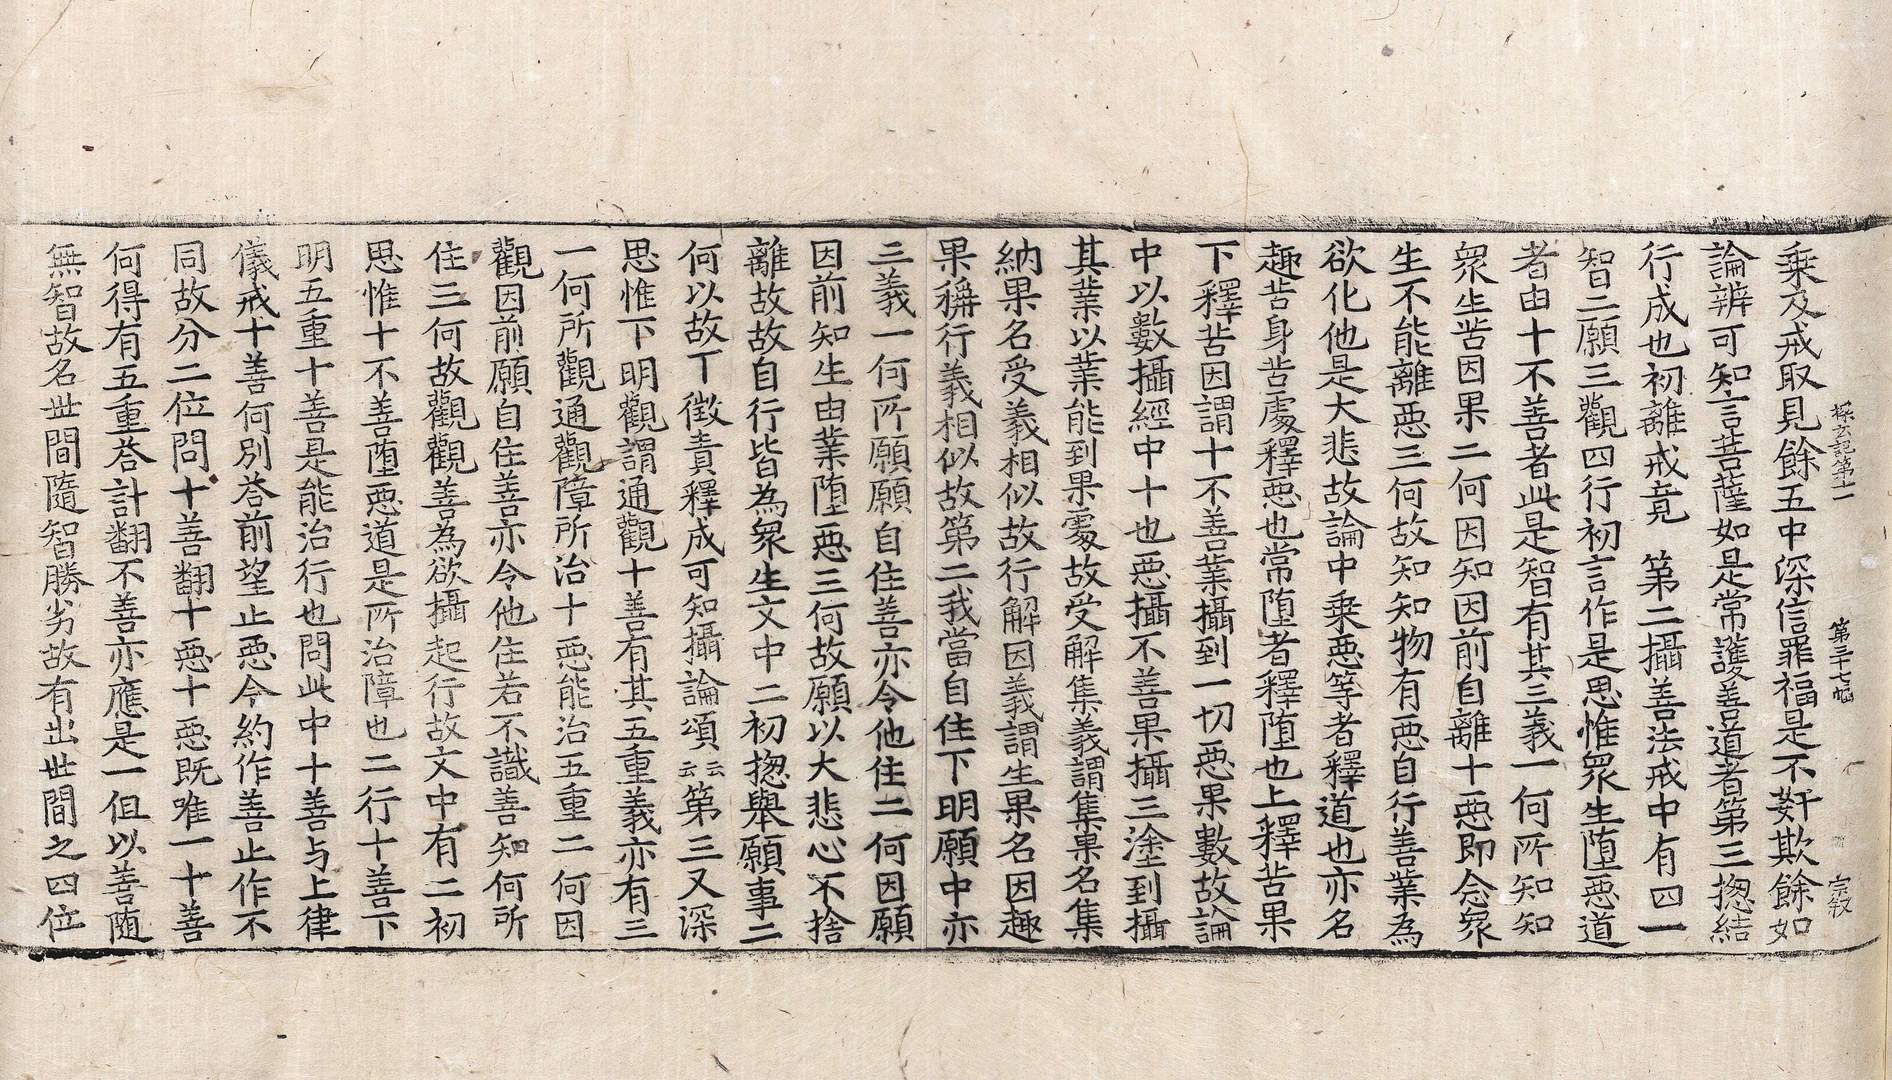 探玄記第十一 第三十七幅 宗敎
乘及戒取見餘五中深信罪福是不姧欺餘如
論辨可知言菩薩如是常護善道者第三揔結
行成也初離戒竟 第二攝善法戒中有四一
智二願三觀四行初言作是思惟衆生堕惡道
者由十不善者此是智有其三義一何所知知
衆生苦因果二何因知因前自離十惡即念衆
生不能離惡三何故知知物有惡自行善業為
欲化他是大悲故論中乗惡等者釋道也亦名
趣苦身苦處釋惡也常堕者釋堕也上釋苦果
下釋苦因謂十不善業攝到一切惡果數故論
中以數攝經中十也惡攝不善果攝三塗到攝
其業以業能到果處故受解集義謂集果名集
納果名受義相似故行解因義謂生果名因趣
果稱行義相似故第二我當自住下明願中亦
三義一何所願願自住善亦令他住二何因願
因前知生由業堕惡三何故願以大悲心不捨
離故故自行皆為衆生文中二初揔舉願事二
何以故下徵責釋成可知攝論頌云云第三又深
思惟下明觀謂通觀十善有其五重義亦有三
一何所觀通觀障所治十惡能治五重二何因
觀因前願自住善亦令他住若不識善知何所
住三何故觀觀善為欲攝起行故文中有二初
思惟十不善堕惡道是所治障也二行十善下
明五重十善是能治行也問此中十善与上律
儀戒十善何別荅前望止惡令約作善止作不
同故分二位問十善翻十惡十惡既唯一十善
何得有五重荅計翻不善亦應是一但以善随
無智故名世間隨智勝劣故有出世間之四位